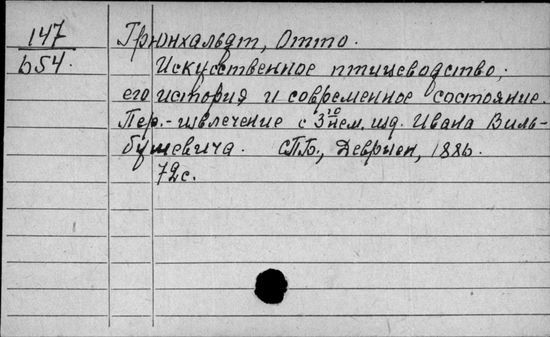 147
b54.
Грюнхальдт, Отто.
Искусственное птицеводство;
его история и современное состояние.
Пер.-извлечение с 3го нем. изд. Ивана Виль-
бушевича. СПБ., Девриен, 1886.
72с.